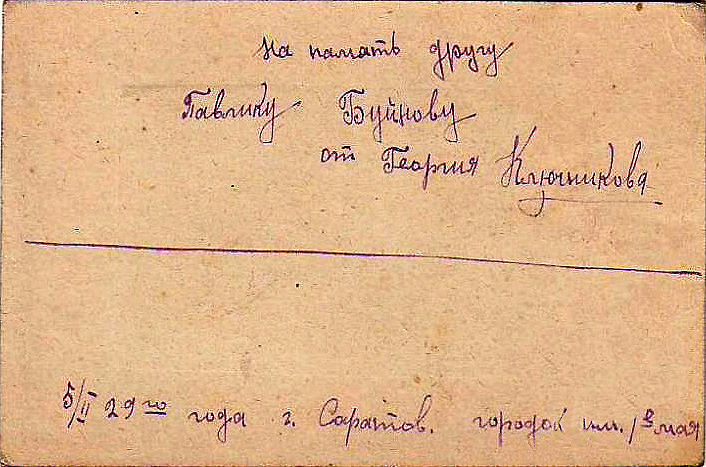 На память другу
Павлику Буйнову
от Георгия Ключникова
5/II 29го года г. Саратов. городок им. 1е мая